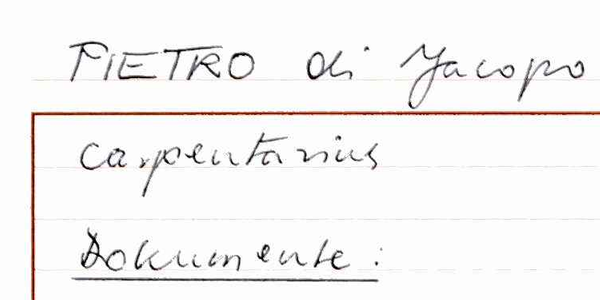 PIETRO di Jacopo
carpentarius
Dokumente: